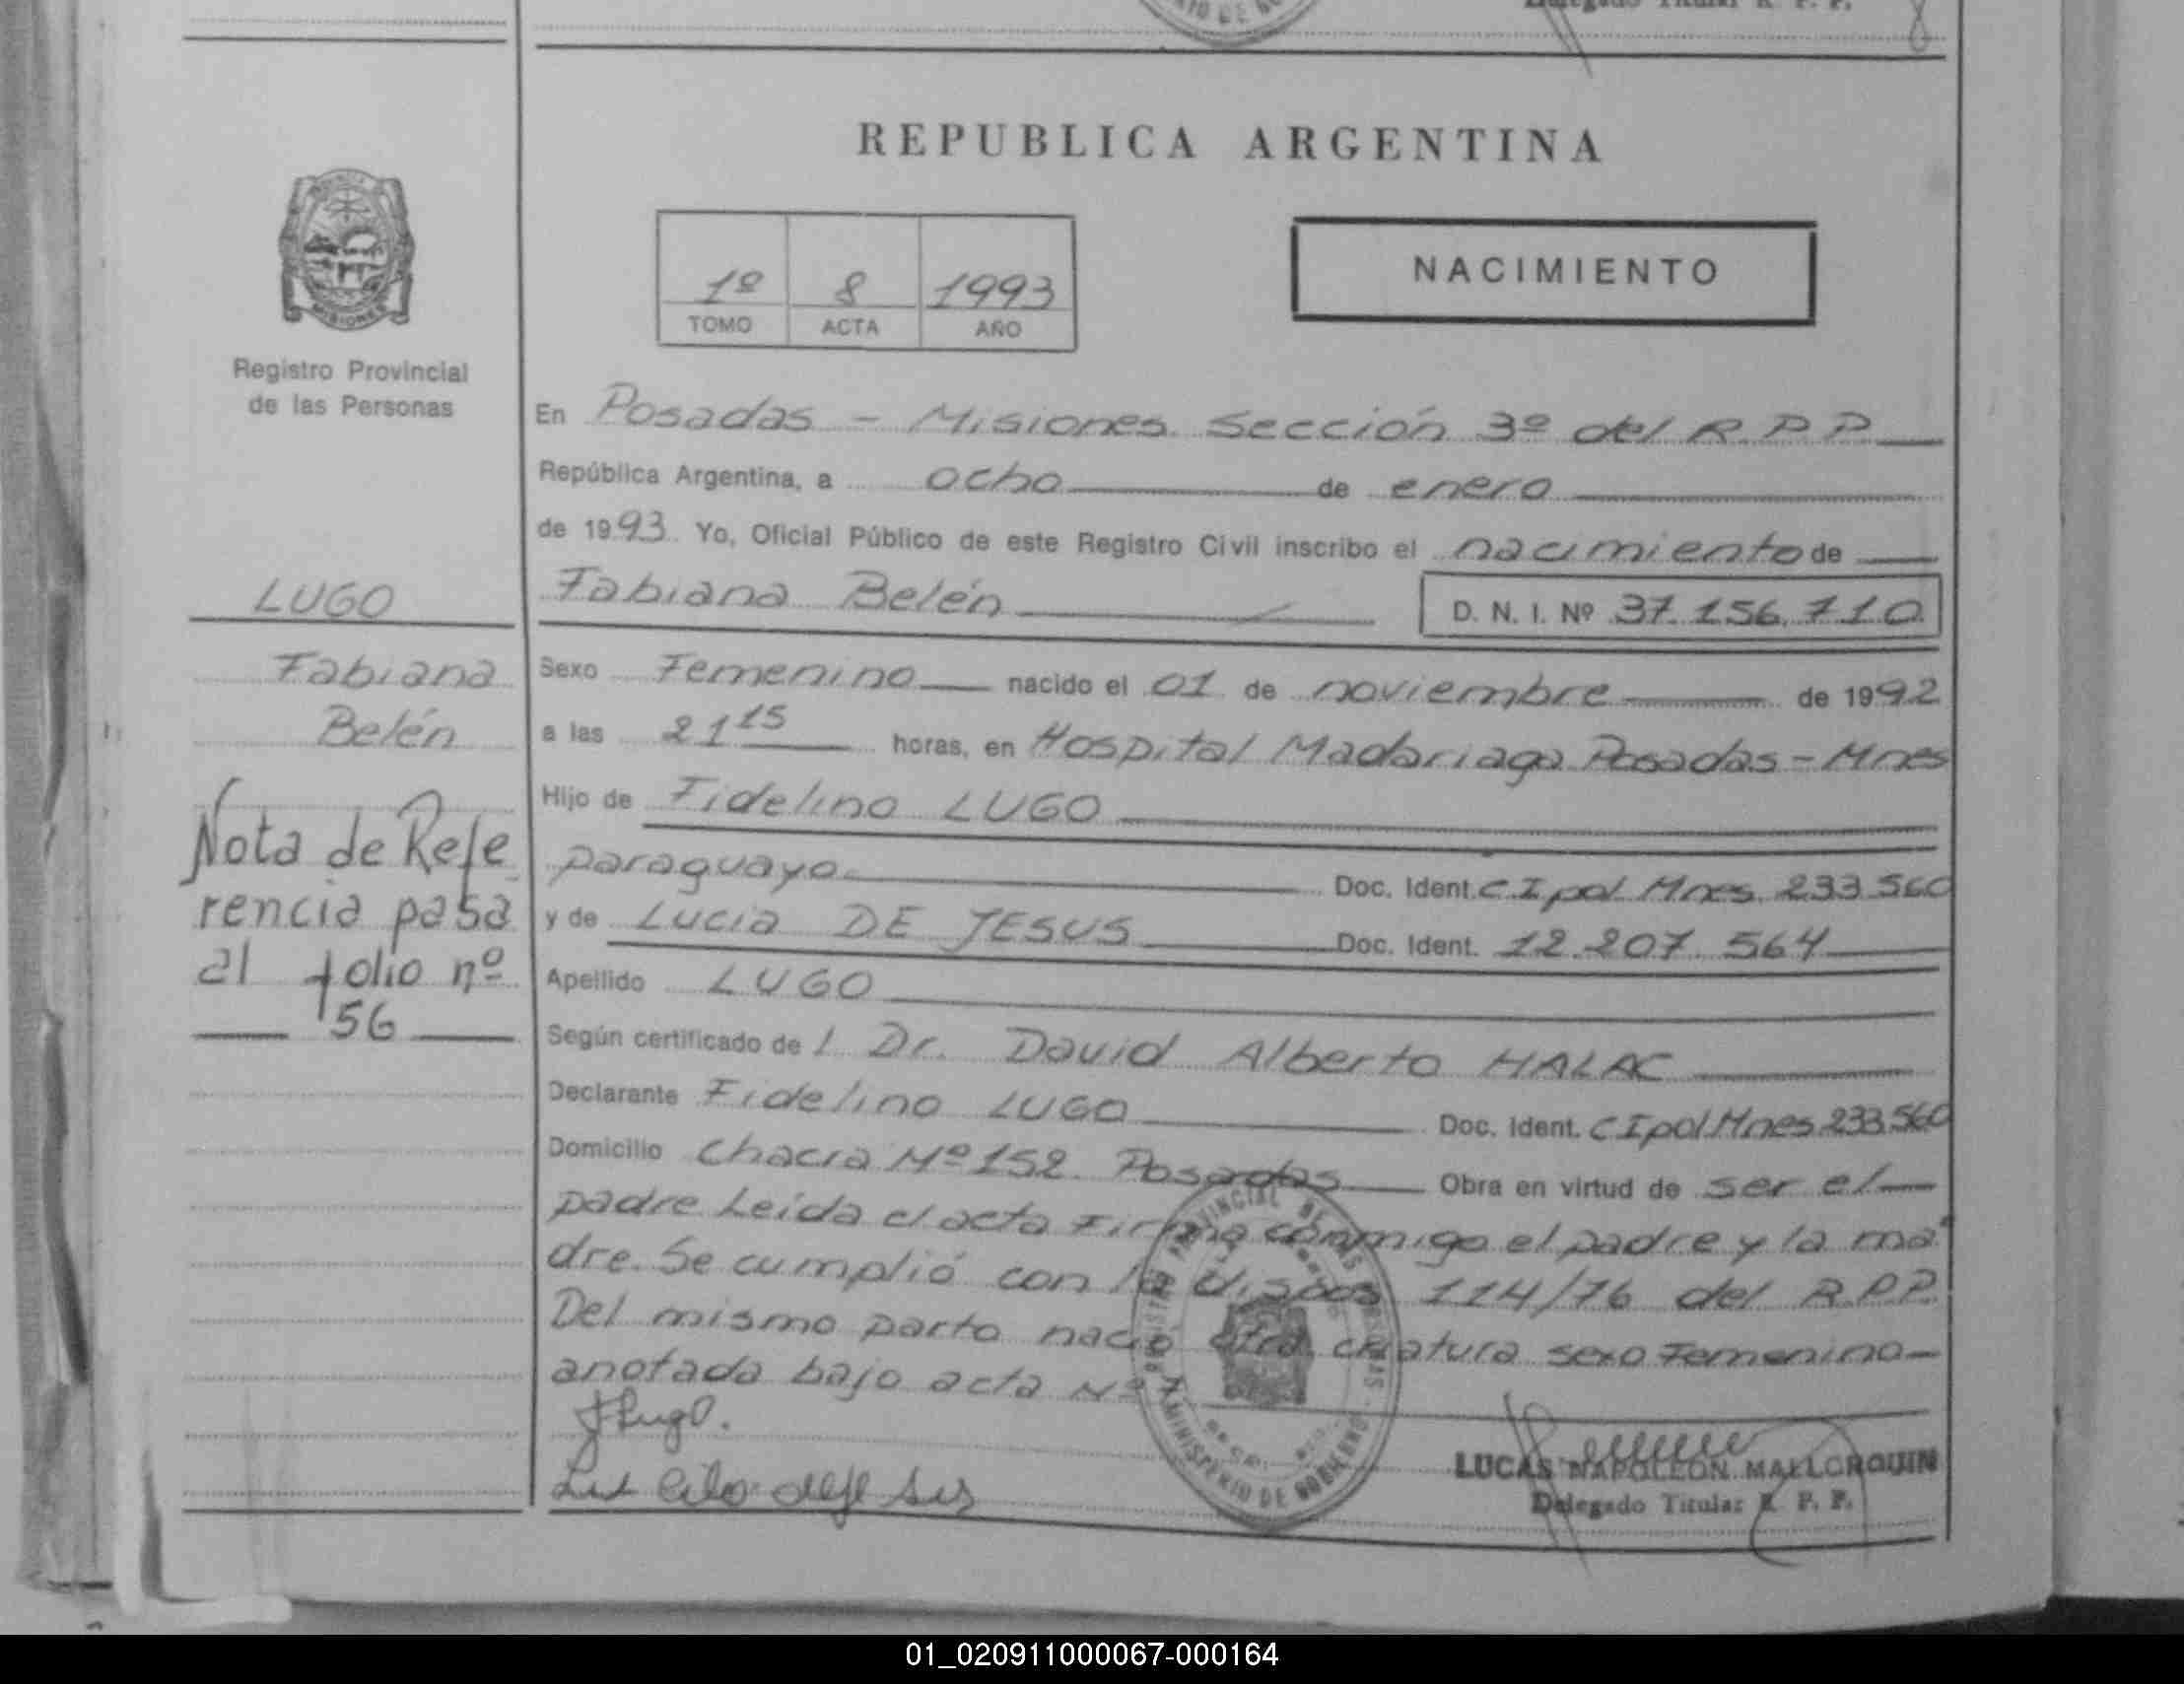 Delegado Titular R. P. P.
REPUBLICA ARGENTINA
1º 8 1993
TOMO ACTA AÑO
NACIMIENTO
MISIONES
Registro Provincial
de las Personas
En Posadas - Misiones Sección 3º del R.P.P.
República Argentina, a ocho de enero
de 1993 Yo, Oficial Público de este Registro Civil inscribo el nacimiento de
Fabiana Belén
D. N. I. Nº 37.156.710
LUGO
Fabiana
Belén
Sexo Femenino nacido el 01 de noviembre de 1992
a las 21 15 horas, en Hospital Madariaga Posadas - Mnes
Hijo de Fidelino LUGO
paraguayo Doc. Ident. C I pol Mnes 233 560
y de Lucia DE JESUS Doc. Ident. 12.207.564
Apellido LUGO
Según certificado de l Dr. David Alberto HALAC
Declarante Fidelino LUGO Doc. Ident. C I pol Mnes 233.560
Domicilio Chacra Nº 152 Posadas Obra en virtud de ser el
padre Leída el acta Firma conmigo el padre y la ma
dre. Se cumplió con la dispos 114/76 del R.P.P.
Del mismo parto nació otra criatura sexo Femenino
anotada bajo acta Nº 7
Nota de Refe
rencia pasa
al folio nº
156
LUCAS NAPOLEON MALLORQUIN
Delegado Titular R. P. P.
MINISTERIO DE GOBIERNO
01_020911000067-000164